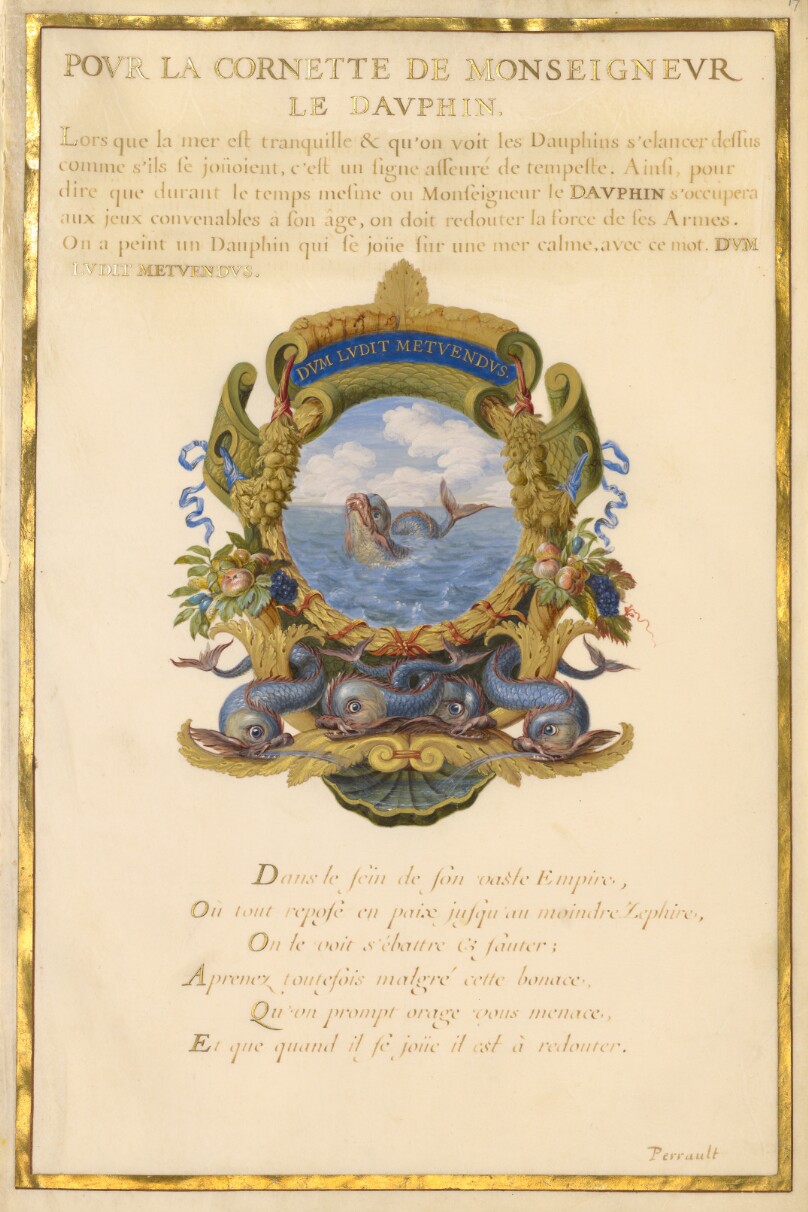 17
POVR LA CORNETTE DE MONSEIGNEVR
LE DAVPHIN.
Lors que la mer eſt tranquille & qu'on voit les Dauphins s'elancer deſſus
comme s'ils ſe joüoient, c'eſt un ſigne aſſeuré de tempeſte. Ainſi, pour
dire que durant le temps meſme ou Monſeigneur le DAVPHIN s'occupera
aux jeux convenables a ſon âge, on doit redouter la force de ſes Armes.
On a peint un Dauphin qui ſe joüe ſur une mer calme, avec ce mot. DVM
LVDIT METVENDVS.
DVM LVDIT METVENDVS.
Dans le ſein de ſon vaste Empire,
Où tout repoſe en paix juſqu'au moindre Zephire,
On le voit s'ébattre & ſauter;
Aprenez toutefois malgré cette bonace,
Qu'un prompt orage vous menace,
Et que quand il ſe joüe il est à redouter.
Perrault